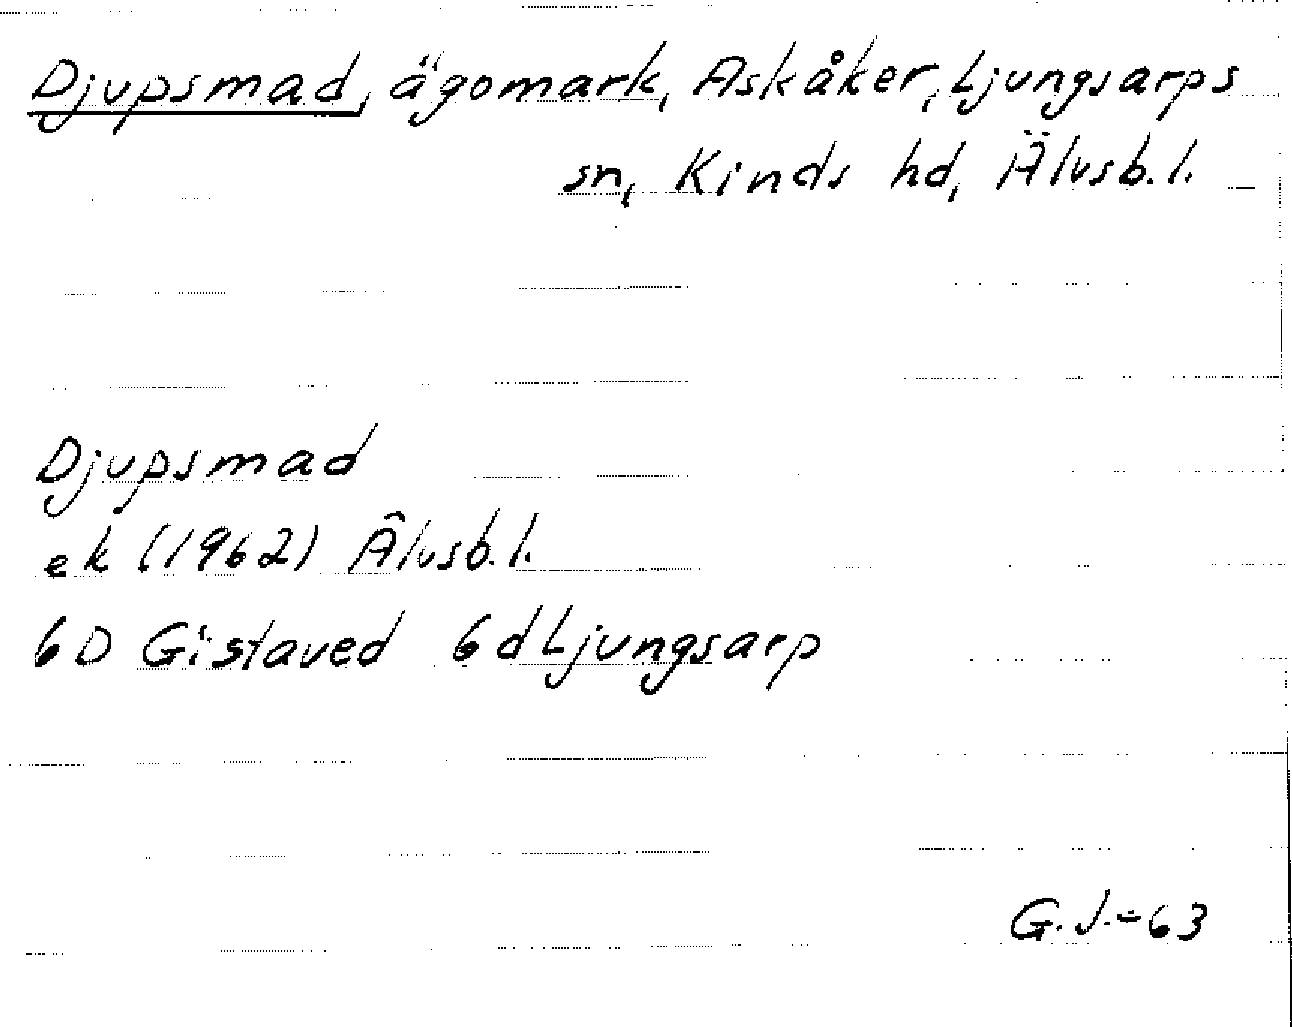 Djupsmad, ägomark, Askåker, Ljungsarps
sn, Kinds hd, Älvsb.l.
Djupsmad
ek (1962) Älvsb.l.
6D Gislaved 6d Ljungsarp
G.J.-63